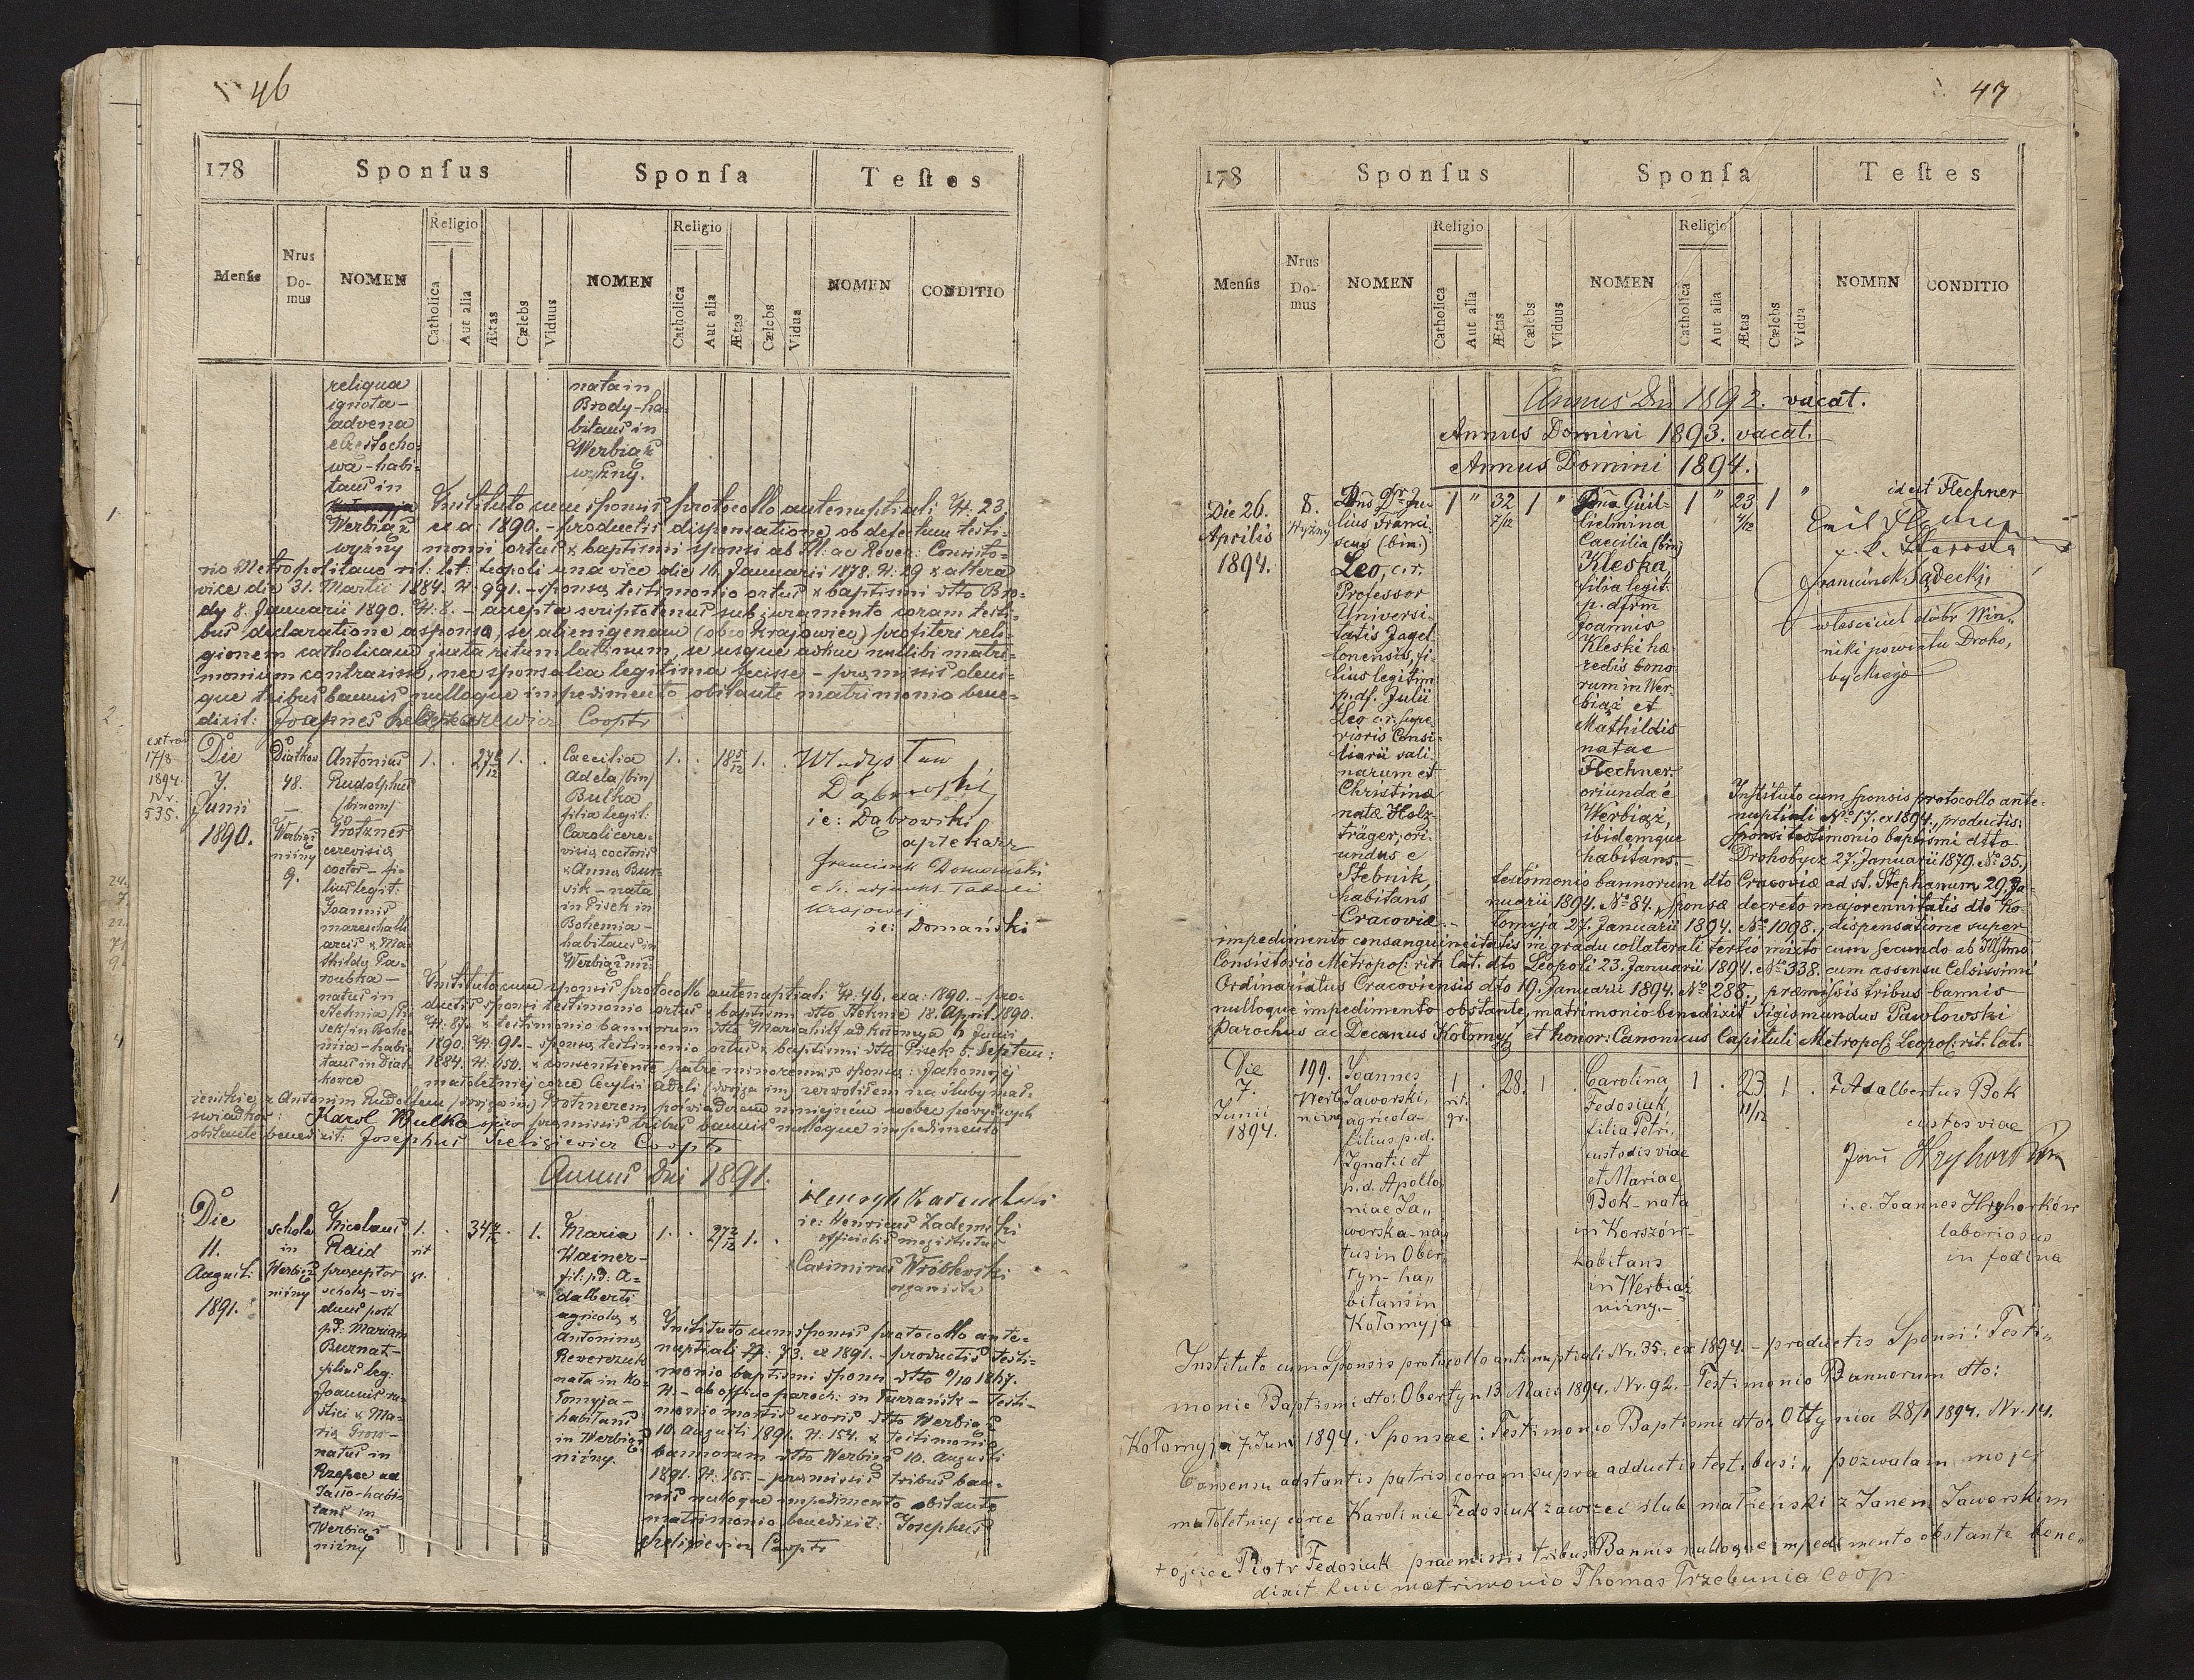 46
178 Sponſus Sponſa Teſtes
Menſis Nrus Do-mus NOMEN Religio Catholica Aut alia Ætas Cælebs Viduus NOMEN Religio Catholica Aut alia Ætas Cælebs Vidua NOMEN CONDITIO
reliqua
ignota -
advena
wa - habi-
tans in
Werbiąż
wyżny
nata in
Brody - ha-
bitans in
Werbiąż
wyżny.
Instituto cum sponsis protocollo antenuptiali N: 23.
ex a: 1890. - productis dispensatione ob defectum testi-
monii ortus & baptismi sponsi ab Ill: ac Rever: Consisto-
rio Metropolitano rit: lat: Leopoli una vice die 16. Januarii 1878. N: 29 & altera
vice die 31. Martii 1884. N: 991. - sponsæ testimonio ortus & baptismi dtto Bro-
dy 8. Januarii 1890. N: 8. - accepta scriptotenus sub juramento coram testi-
bus declaratione a sponso, se alienigenam (obcokrajowiec) profiteri reli-
gionem catholicam juxta ritum latinum, se usque adhuc nullibi matri-
monium contraxisse, nec sponsalia legitima fecisse - præmissis deni-
que tribus bannis nulloque impedimento obstante matrimonio bene-
dixit: Cooptr
extrad
17/8
1894
Nr.
535.
Die
7.
Junii
1890.
Diatkow
48.
Werbiąż
niżny
9.
Antonius
Rudolphus
/binom/
Protzner
cerevisiæ
coctor - fi-
lius legit:
Joannis
mareschalli
arcis & Ma-
thildis Pa-
roubka -
natus in
Stěknia /Pi-
sek/ in Bohe-
mia - habi-
tans in Diat-
kowce
1. . 27 8/12 1. .
Caecilia
Adela /bin/
Bulka
filia legit:
Caroli cere-
visiæ coctoris
& Anna Bur-
sik - nata
in Pisek in
Bohemia -
habitans in
Werbiąż niż:
1. . 18 5/12 1. .
Władysław
Dąbrowski
ie: Dąbrowski
aptekarz
Franciszek Domański
c. k. adjunkt Tabuli
krajowej
ie: Domański
Instituto cum sponsis protocollo antenuptiali N: 46. ex a: 1890. - pro-
ductis sponsi testimonio ortus & baptismi dtto Stěkna 18. April. 1890.
N: 87. & testimonio bannorum dtto Mariahilf ad Kołomyja 6 Junii
1890. N: 91. - sponsæ testimonio ortus & baptismi dtto Pisek 5. Septem:
1884. N: 650. & consentiente patre minorennis sponsæ: Jako mojej
małoletniej córce Cecylii Adeli (dwojga im) zezwoliłem na śluby mał-
żeńskie z Antonim Rudolfem /dwojga im/ Protznerem poświadczam niniejszem wobec powyższych
świadków: Karol Bulka ojciec præmissis tribus bannis nulloque impedimento
obstante benedixit: Josephus Szeligiewicz Cooptr
Annus Dni 1891.
Die
11.
Augusti
1891.
schola
in
Werbiąż
niżny
Nicolaus
Raid
præceptor
scholæ - vi-
duus post
pd: Mariam
Burnat -
filius leg:
Joannis ru-
stici & Ma-
riæ Gross -
natus in
Rzepce ad
Jasło - habi-
tans in
Werbiąż
niżny
1. rit gr. . 34 . 1.
Maria
Wainer -
fil: pd: A-
dalberti
agricolæ &
Antoninæ
Reverszuk
nata in Ko-
łomyja -
habitans
in Werbiąż
niżny.
1. . 27 2/12 1. .
ie: Henricus Zademski
officialis magistratus
Casimirus Wróblewski
organista
Instituto cum sponsis protocollo ante-
nuptiali N: 73. ex 1891. - productis testi-
monio baptismi sponsi dtto 9/10 1867.
N: - ab officio paroch: in Turzańsk - testi-
monio mortis uxoris dtto Werbiąż
10. Augusti 1891. N: 154. & testimonio
bannorum dtto Werbiąż 10. Augusti
1891. N: 155. - præmissis tribus ban-
nis nulloque impedimento obstante
matrimonio benedixit: Josephus
Szeligiewicz Cooptr
47
178 Sponſus Sponſa Teſtes
Menſis Nrus Do-mus NOMEN Religio Catholica Aut alia Ætas Cælebs Viduus NOMEN Religio Catholica Aut alia Ætas Cælebs Vidua NOMEN CONDITIO
Annus Dni 1892. vacat.
Annus Domini 1893. vacat.
Annus Domini 1894.
Die 26.
Aprilis
1894.
8.
Wyżny
Dns Dr Ju-
lius Franci-
scus (bin:)
Leo, c. r.
Professor
Universi-
tatis Jagel-
lonensis, fi-
lius legitim:
p. df. Julii
Leo c. r. supe-
rioris Consi-
liarii sali-
narum et
Christinæ
natæ Holz-
träger, ori-
undus e
Stebnik,
habitans
Cracoviæ. -
1 " 32 7/12 1 "
Dna Guil-
lielmina
Caecilia (bin)
Kleska,
filia legit:
p. dfrm
Joannis
Kleski hæ-
redis bono-
rum in Wer-
biąż et
Mathildis
natae
Flechner.
oriunda e
Werbiąż,
ibidemque
habitans. -
1 " 23 4/12 1 "
id est Flechner
Emil Flechner
c. k. Starosta
Franciszek Sądecki,
właściciel dóbr Win-
niki powiatu Droho-
byckiego
Instituto cum sponsis protocollo ante-
nuptiali No 17. ex 1894., productis:
Sponsi testimonio baptismi dtto
Drohobycz 27. Januarii 1879. No 35.,
testimonio bannorum dto Cracoviæ ad st. Stephanum 29. Ja-
nuarii 1894. No 84., Sponsæ decreto majorennitatis dto Ko-
łomyja 27. Januarii 1894. No 1098., dispensatione super
impedimento consanguineitatis in gradu collaterali tertio mixto cum secundo ab Illstmo
Consistorio Metropol: rit: lat. dto Leopoli 23. Januarii 1894. No 338. cum assensu Celsissimi
Ordinariatus Cracoviensis dto 19. Januarii 1894. No 288., præmissis tribus bannis
nulloque impedimento obstante, matrimonio benedixit Sigismundus Pawłowski
Parochus ac Decanus Kołomyj: et honor: Canonicus Capituli Metropol: Leopol: rit. lat.
Die
7.
Junii
1894.
199.
Werb.
niżny
Joannes
Jaworski,
agricola -
filius p. d.
Ignatii et
p. d. Apollo-
niae Ja-
worska - na-
tus in Ober-
tyn - ha-
bitans in
Kołomyja
1 rit. gr. . 28. 1 .
Carolina
Fedosiuk,
filia Petri,
custodis viae
et Mariae
Bok - nata
in Korszów -
habitans
in Werbiąż
niżny. -
1 . 23 11/12 1 .
Adalbertus Bok
custos viae
Jan Hryhorków
i. e. Joannes Hryhorków
laboriosus
in fodina
Instituto cum Sponsis protocollo antenuptiali Nr. 35. ex 1894. - productis Sponsi: Testi-
monio Baptismi dto: Obertyn 13. Maii 1894. Nr. 92. - Testimonio Bannorum dto:
Kołomyja 7. Juni 1894. Sponsae: Testimonio Baptismi dto: Ottynia 28/1 1894. Nr. 14.
Consensu adstantis patris coram supra adductis testibus: „pozwalam mojej
małoletniej córce Karolinie Fedosiuk zawrzeć ślub małżeński z Janem Jaworskim
+ ojciec Piotr Fedosiuk praemissis tribus Bannis nulloque impedimento obstante bene-
dixit huic matrimonio Thomas Trzebunia coop.